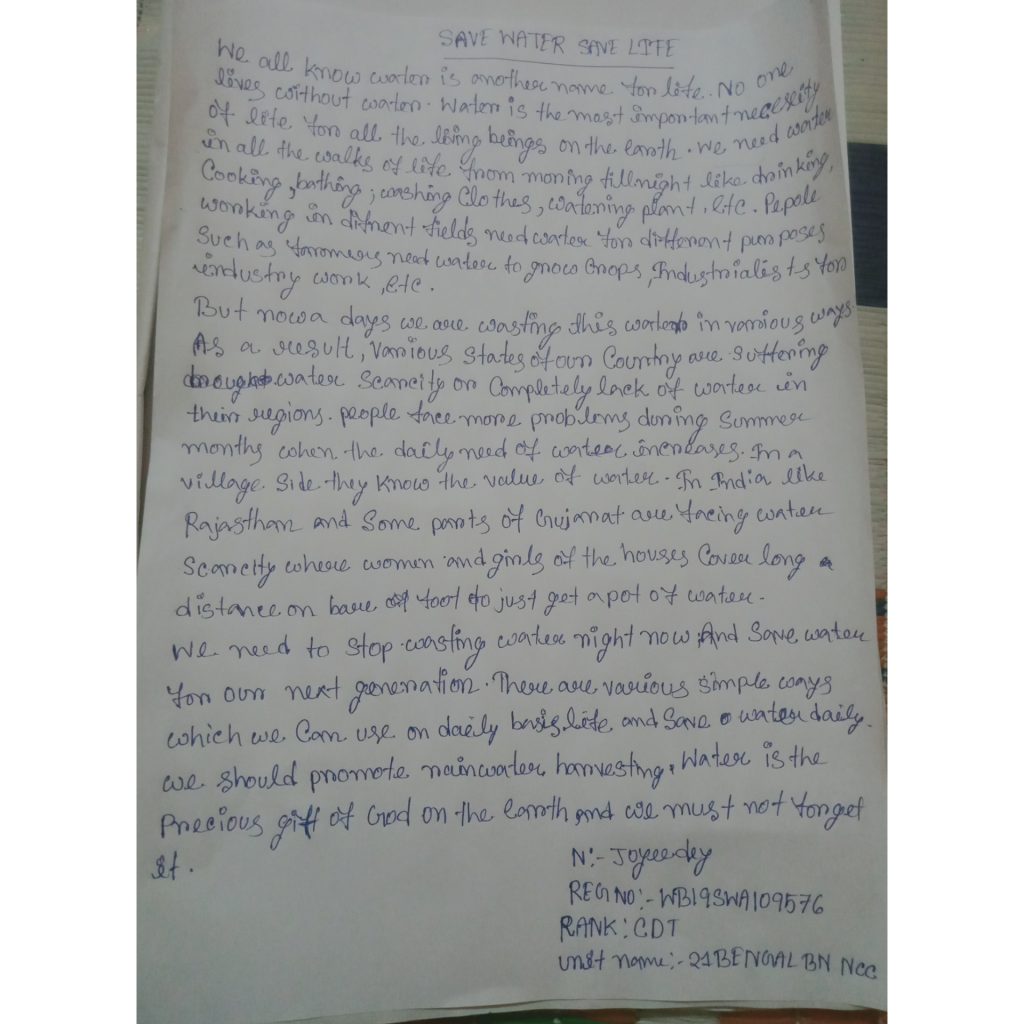 SAVE WATER SAVE LIFE
We all know water is another name for life. No one
lives without water. Water is the most important necessity
of life for all the living beings on the earth. We need water
in all the walks of life from moning till night like drinking,
Cooking, bathing, washing Clothes, watering plant, etc. Pepole
working in difrent fields need water for different purposes
Such as farmers need water to grow Crops, Industrialists for
industry work, etc.
But now a days we are wasting this water in various ways.
As a result, various States of our Country are suffering
water Scarcity or Completely lack of water in
their regions. people face more problems during Summer
months when the daily need of water increases. In a
village side they know the value of water. In India like
Rajasthan and Some parts of Gujarat are facing water
Scarcity where women and girls of the houses Cover long
distance on bare foot to just get a pot of water.
We need to stop wasting water right now, And Save water
for our next generation. There are various simple ways
which we Can use on daily basis life and Save water daily.
We should promote rainwater harvesting. Water is the
Precious gift of God on the earth and we must not forget
it.
N:- Joyee dey
REG NO:- WB19SWA109576
RANK: CDT
Unit name:- 21 BENGAL BN NCC